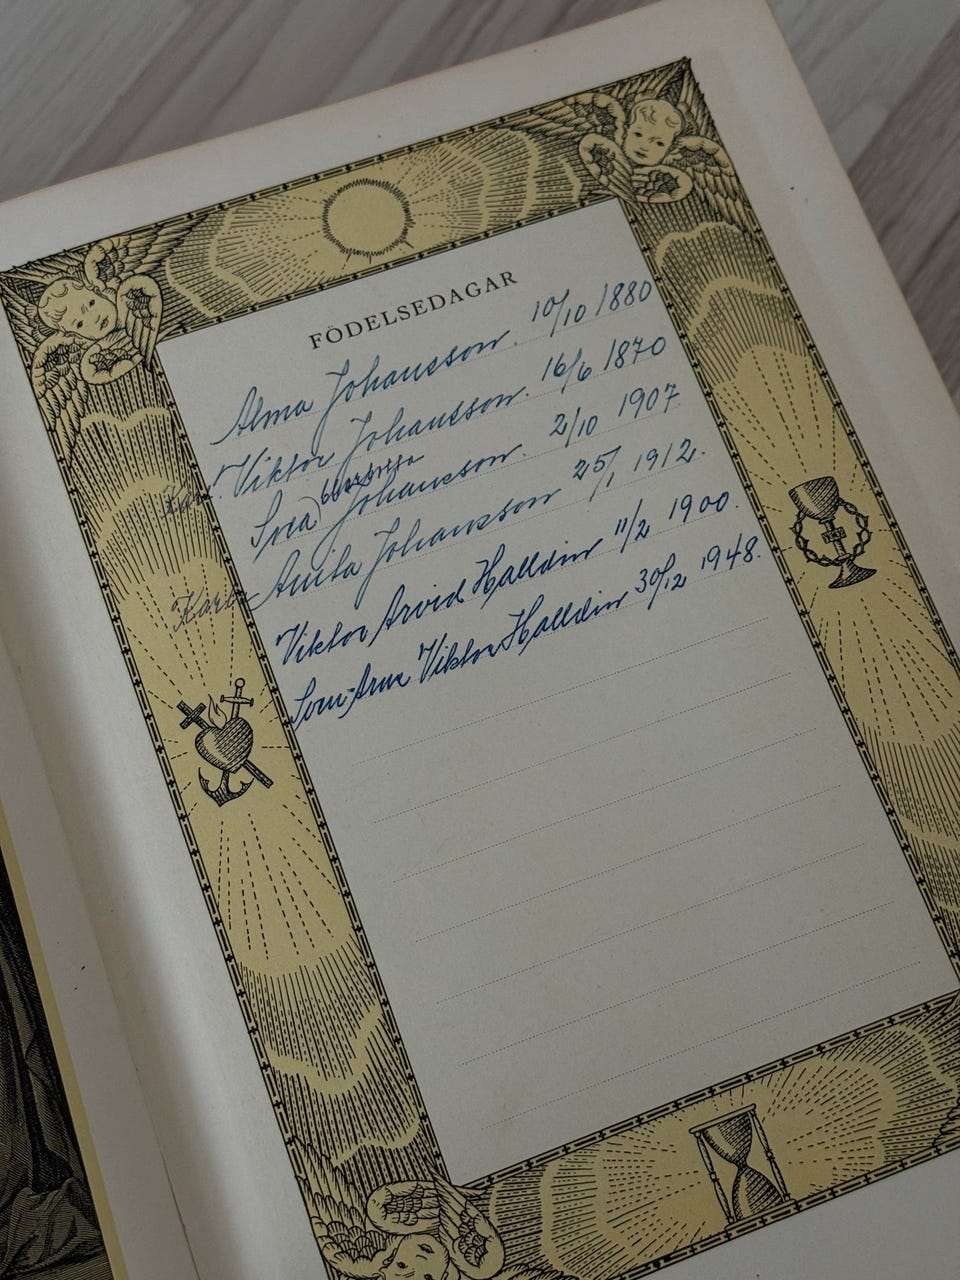 FÖDELSEDAGAR
Alma Johansson. 10/10 1880
Viktor Johansson. 16/6 1870
Svea Johansson. 2/10 1907
Anita Johansson 25/1 1912.
Viktor Arvid Halldin 11/2 1900.
Sven-Arne Viktor Halldin 30/12 1948.